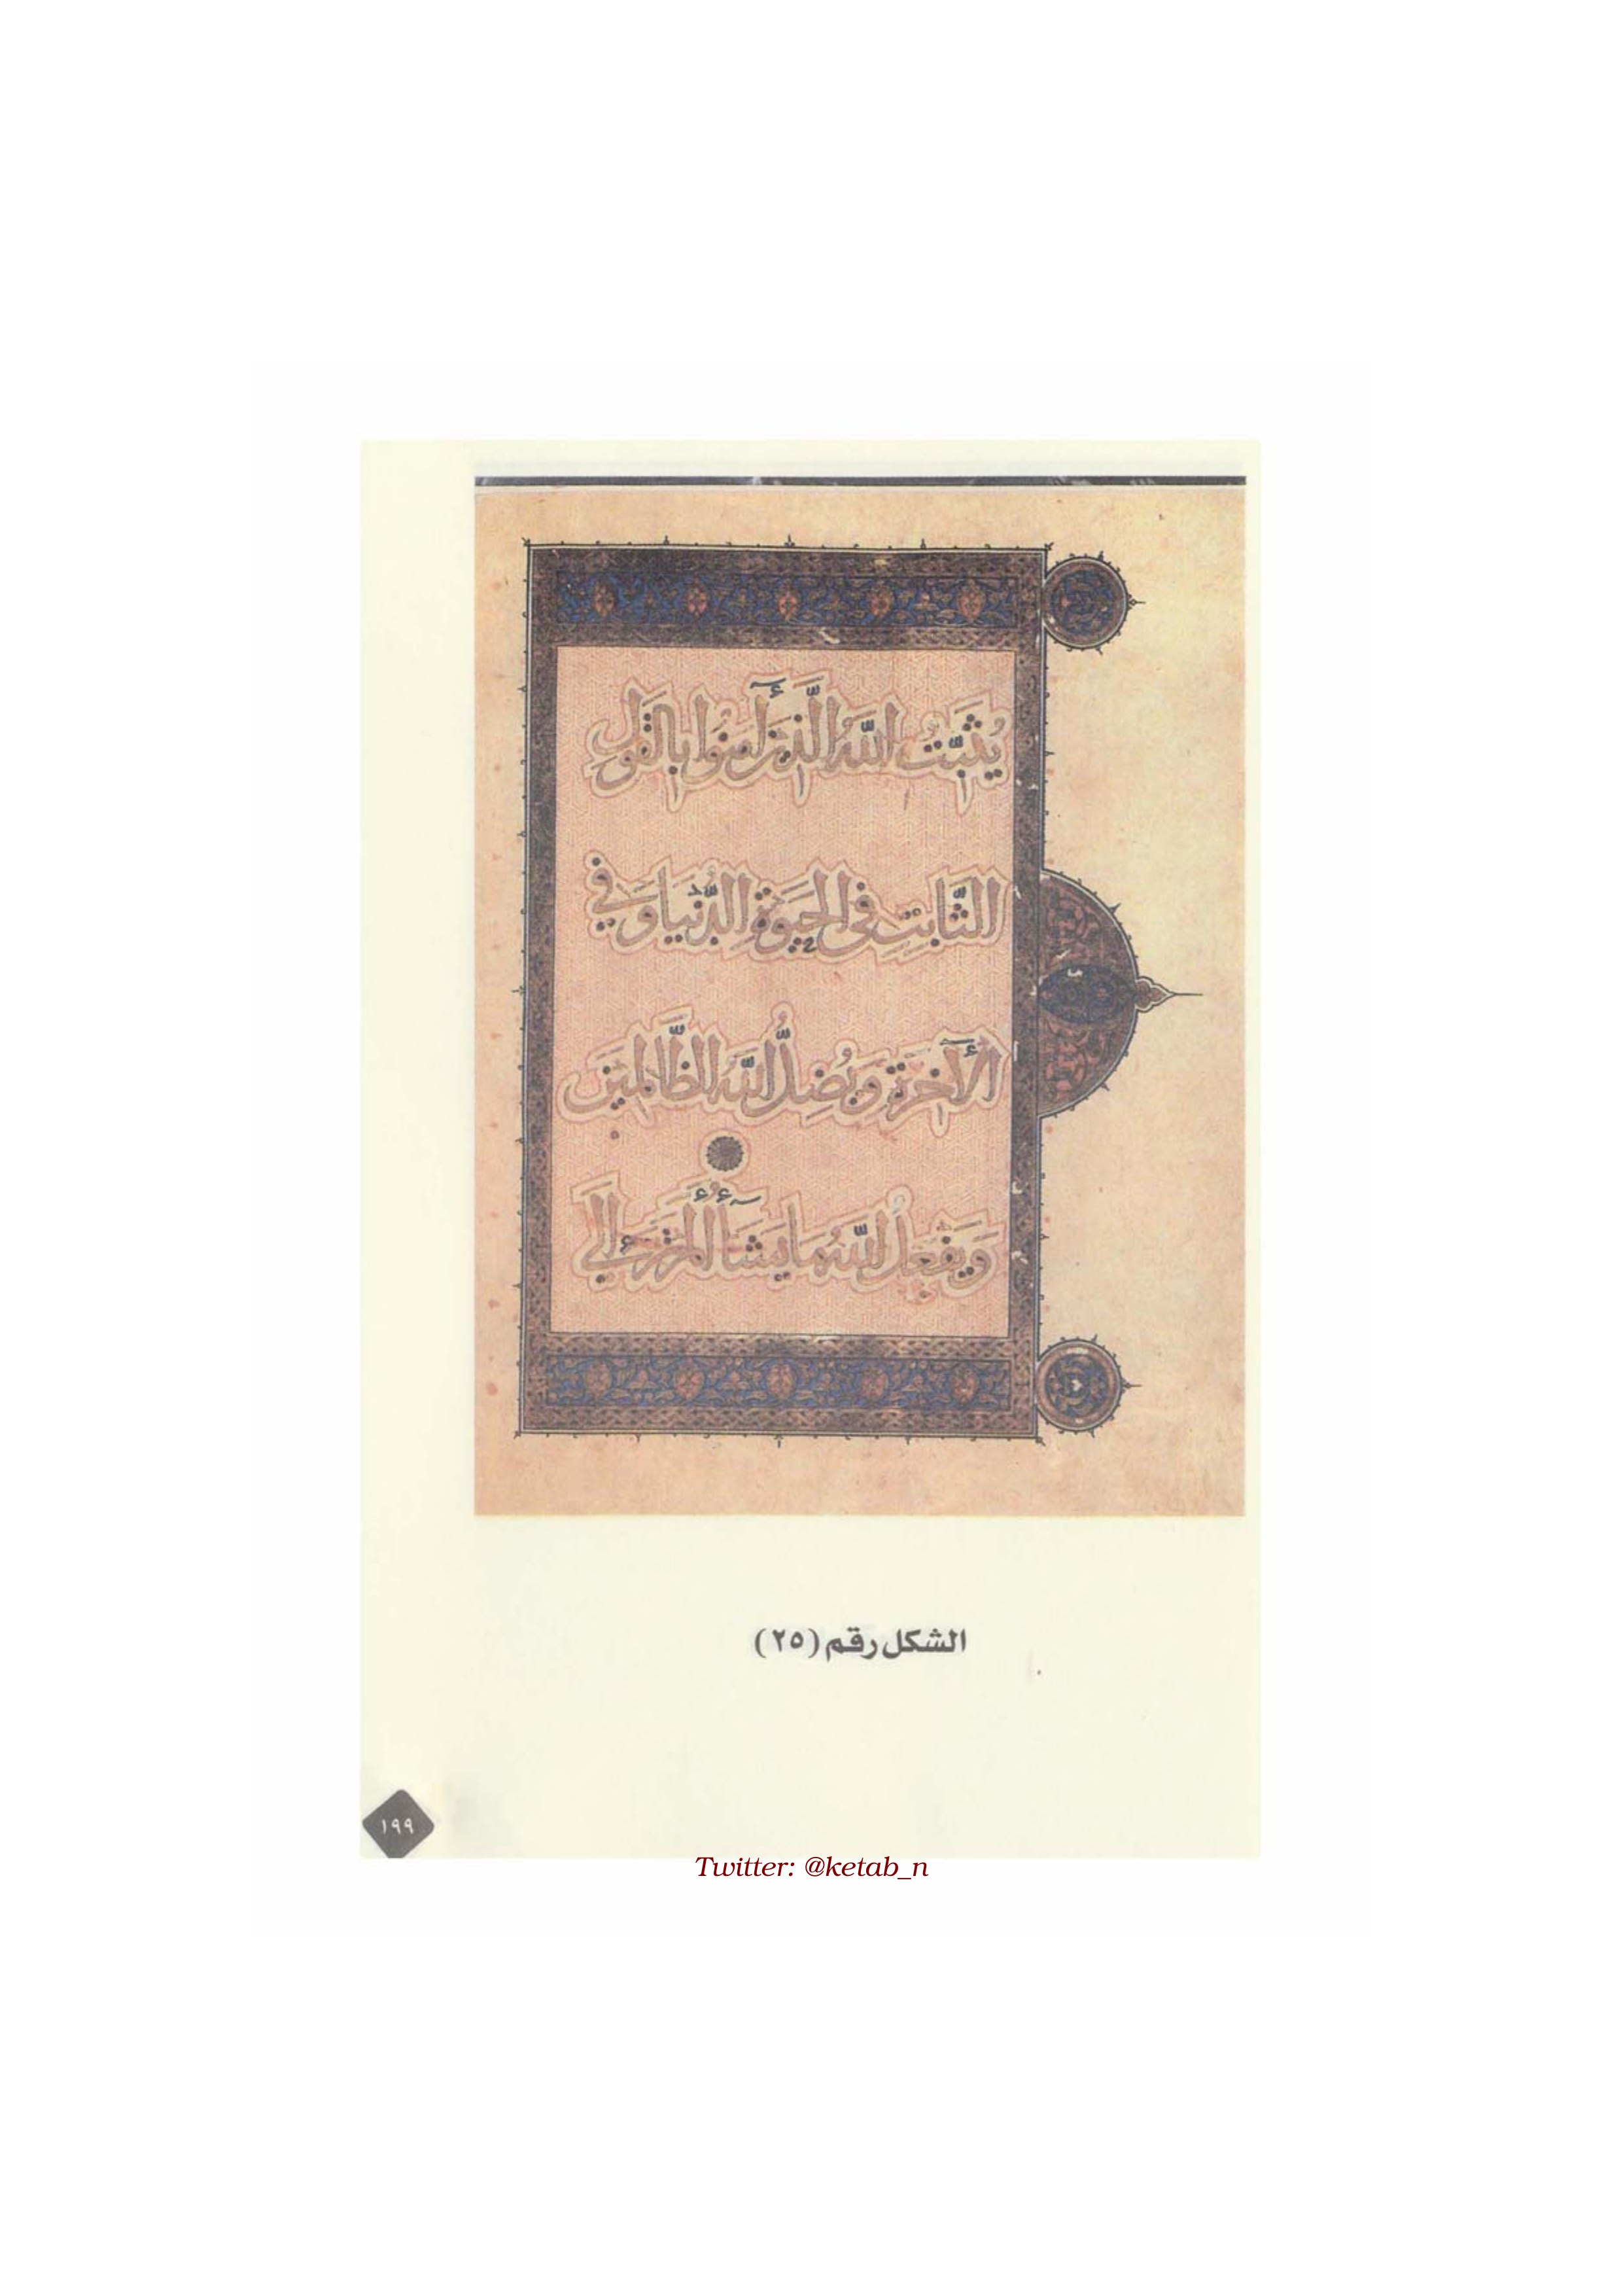 يُثَبِّتُ اللّٰهُ الَّذِينَ آمَنُوا بِالْقَوْلِ
الثَّابِتِ فِي الْحَيَوةِ الدُّنْيَا وَفِي
الْآخِرَةِ وَيُضِلُّ اللّٰهُ الظَّالِمِينَ
وَيَفْعَلُ اللّٰهُ مَا يَشَآءُ أَلَمْ تَرَ إِلَى
الشكل رقم (٢٥)
١٩٩
Twitter: @ketab_n